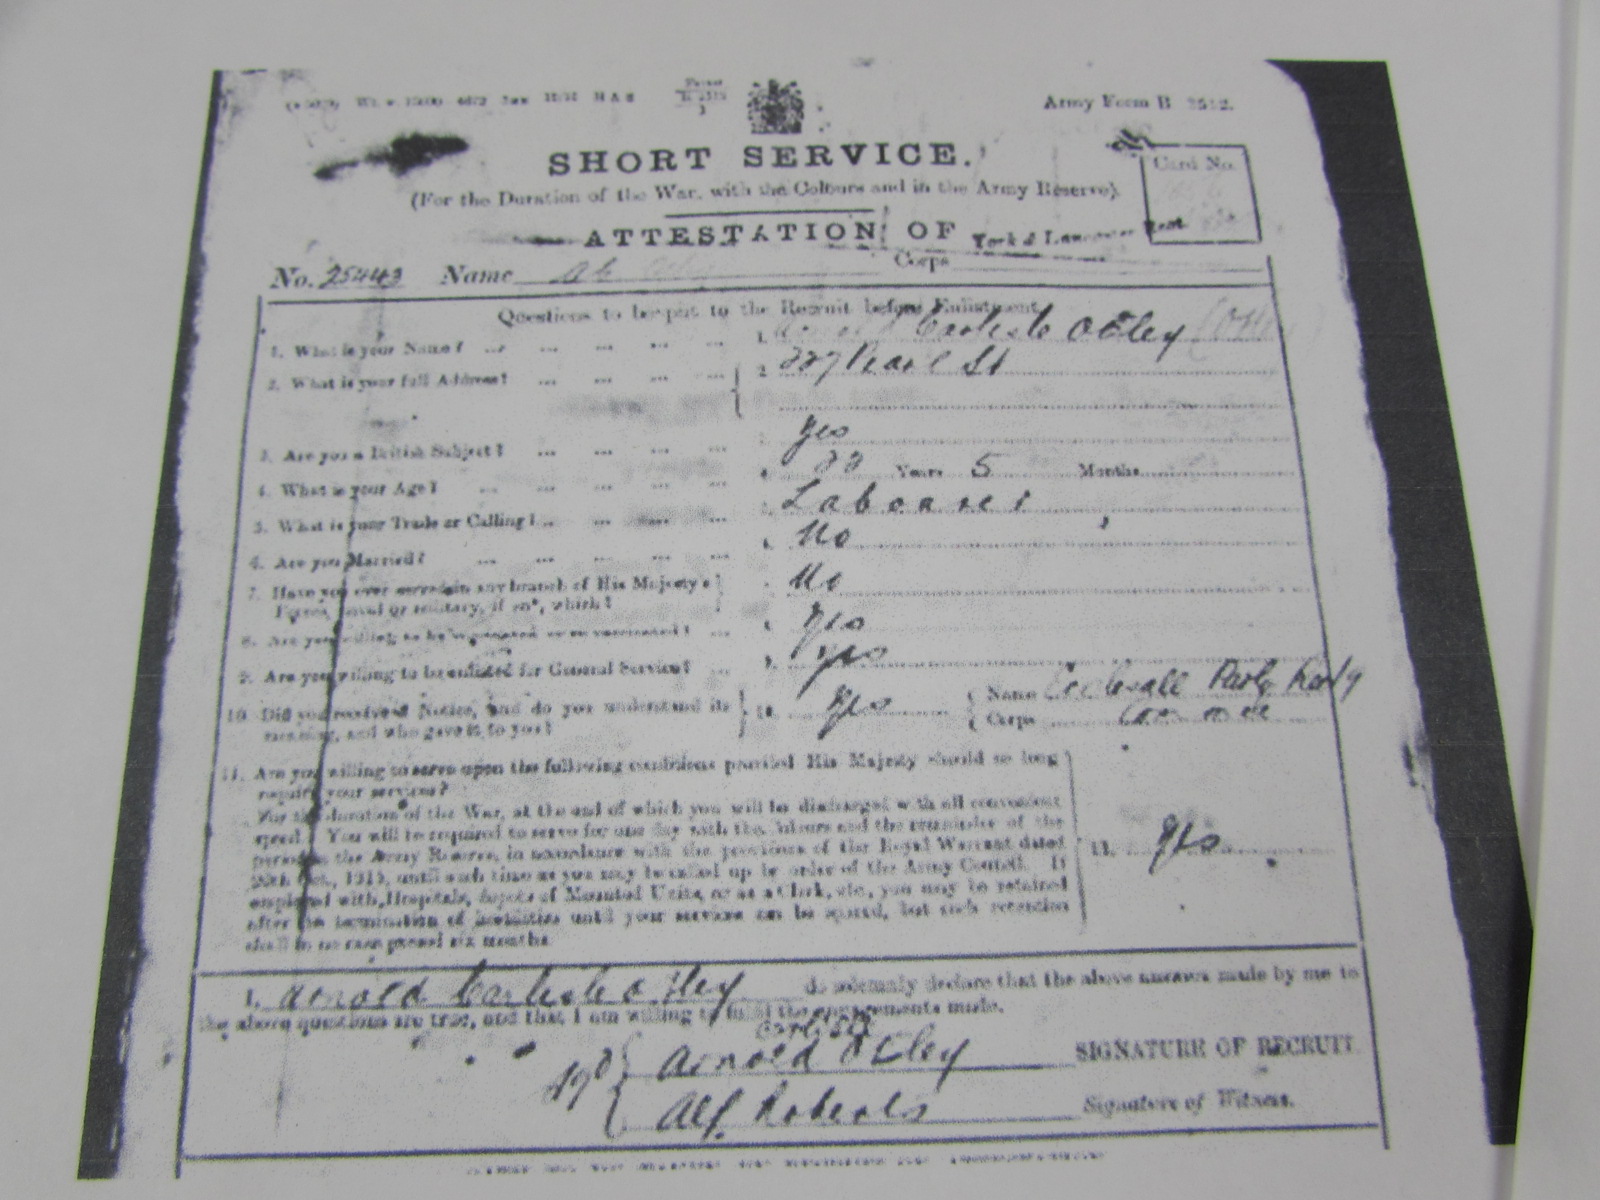 Army Form B 2512.
SHORT SERVICE.
Card No.
(For the Duration of the War, with the Colours and in the Army Reserve).
ATTESTATION OF
York & Lancaster Regt
No. 25443 Name Corps
Questions to be put to the Recruit before Enlistment.
1. What is your Name? ... 1. Arnold Carlisle Otley
2. What is your full Address? ... 2. 227 Pearl St
3. Are you a British Subject? ... Yes
4. What is your Age? ... Years 5 Months
5. What is your Trade or Calling? ... Labourer
6. Are you Married? ... No
7. Have you ever served in any branch of His Majesty's No
Forces, naval or military, if so*, which?
8. Are you willing to be vaccinated or re-vaccinated? ... Yes
9. Are you willing to be enlisted for General Service? ... Yes
10. Did you receive a Notice, and do you understand its 10. Yes Name
meaning, and who gave it to you? Corps
11. Are you willing to serve upon the following conditions provided His Majesty should so long
require your services?
For the duration of the War, at the end of which you will be discharged with all convenient
speed. You will be required to serve for one day with the Colours and the remainder of the
period in the Army Reserve, in accordance with the provisions of the Royal Warrant dated
20th Oct., 1915, until such time as you may be called up by order of the Army Council. If
employed with Hospitals, depots of Mounted Units, or as a Clerk, etc., you may be retained
after the termination of hostilities until your services can be spared, but such retention
shall in no case exceed six months.
11. Yes
I, Arnold Carlisle Otley do solemnly declare that the above answers made by me to
the above questions are true, and that I am willing to fulfil the engagements made.
Carlisle
Arnold Otley SIGNATURE OF RECRUIT.
Alf. Roberts Signature of Witness.